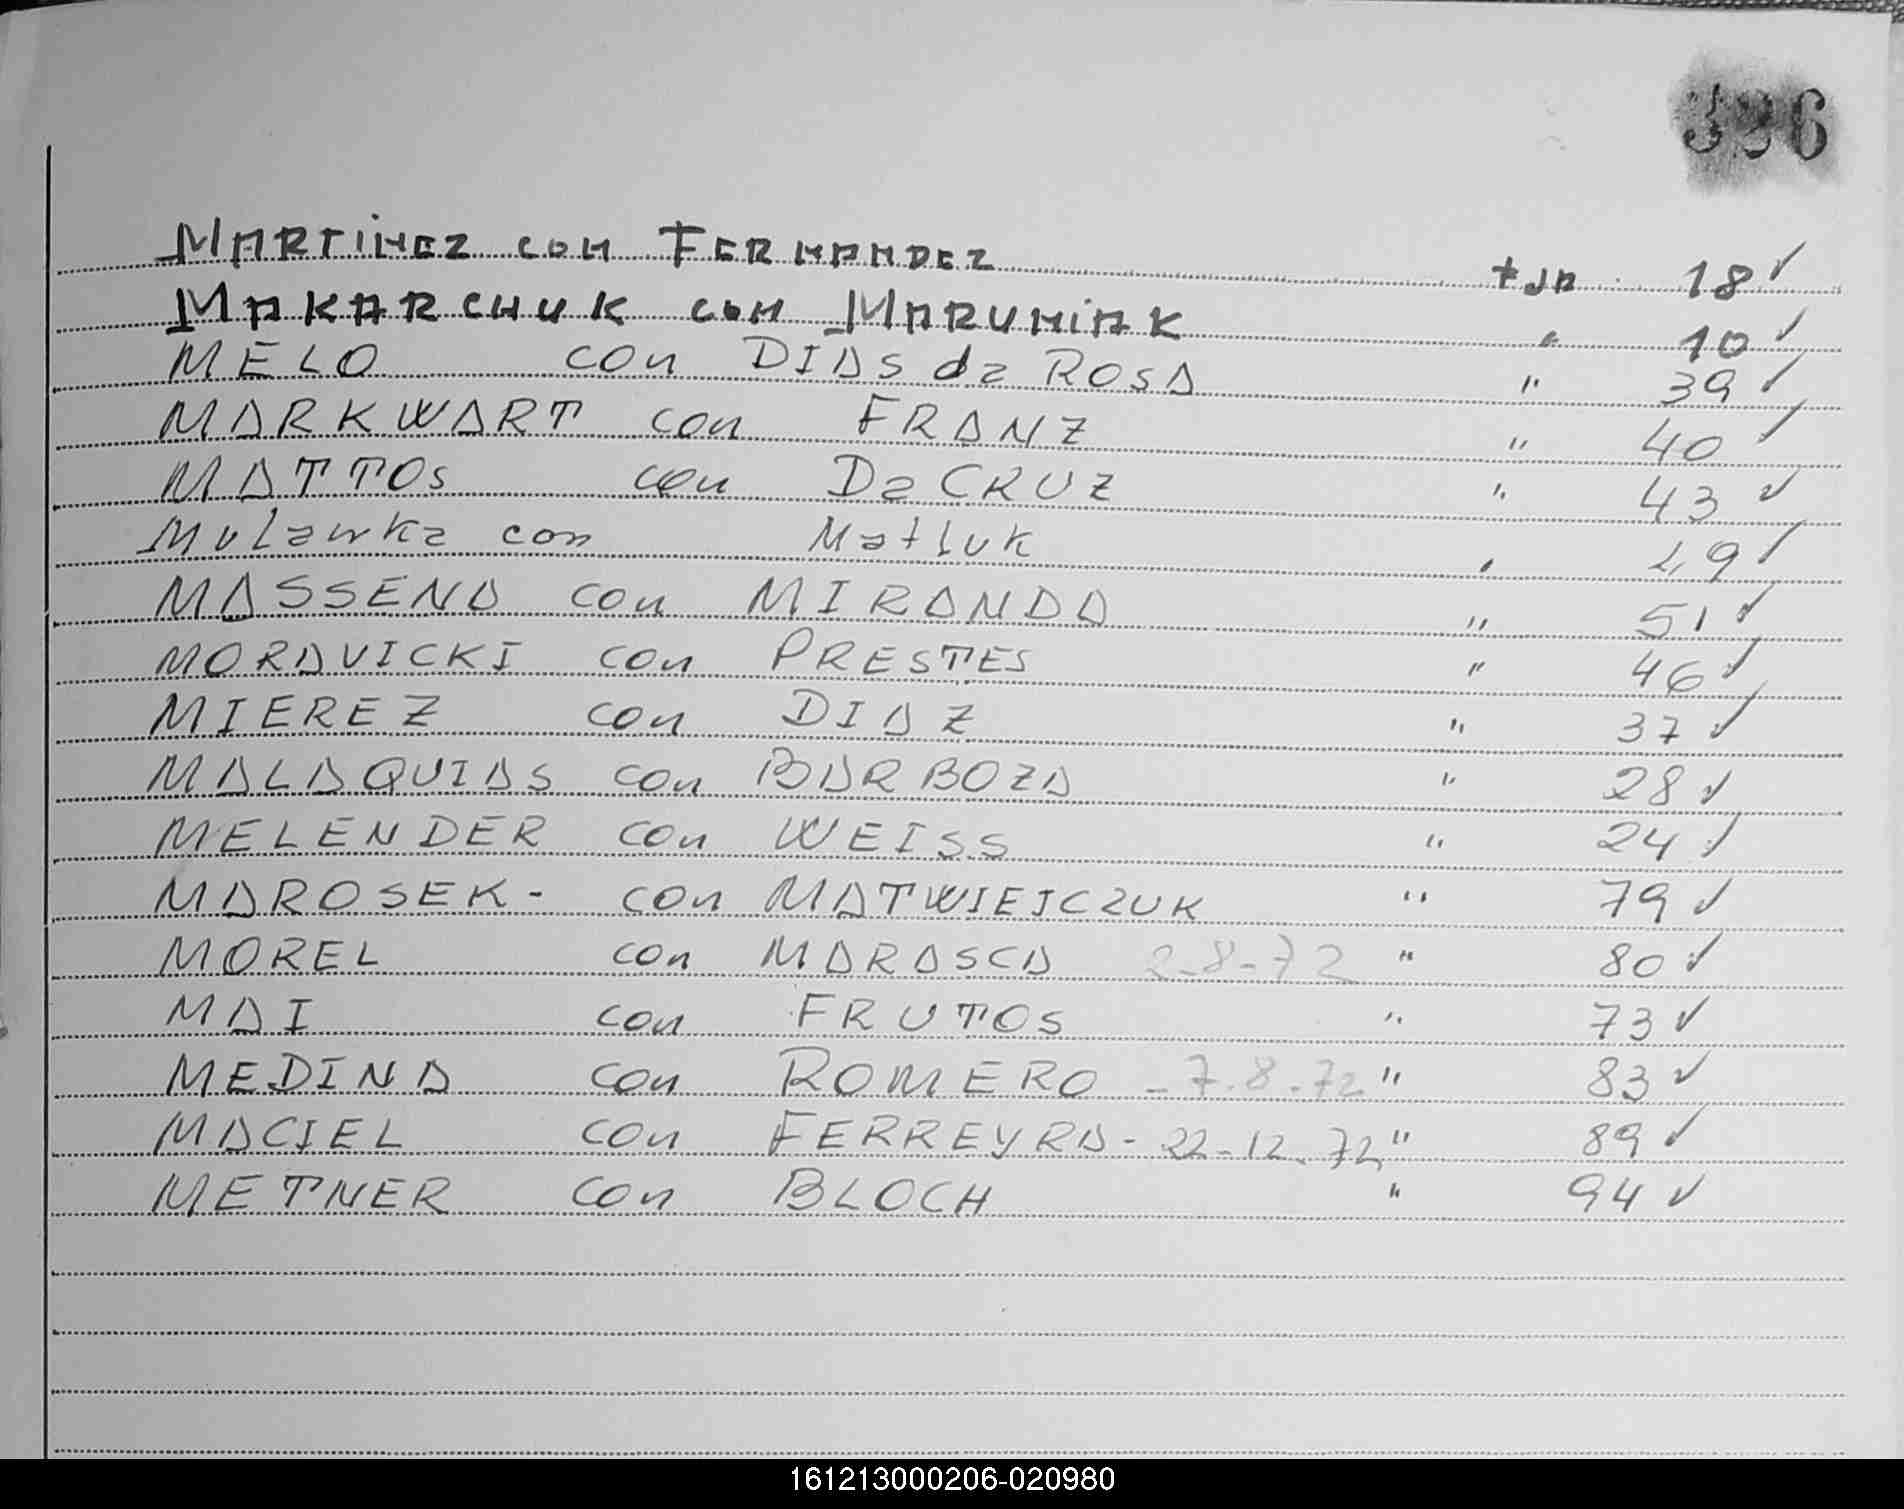 396
MARTINEZ con FERNANDEZ
MAKARCHUK con MARUNIAK " 10 ✓
MELO con DIAS da ROSA " 39 ✓
MARKWART con FRANZ " 40 ✓
MATTOS con Da CRUZ " 43 ✓
Mulawka con Matluk " 49 ✓
MASSENA con MIRANDA " 51 ✓
MORAVICKI con PRESTES " 46 ✓
MIEREZ con DIAZ " 37 ✓
MALAQUIAS con BARBOZA " 28 ✓
MELENDER con WEISS " 24 ✓
MAROSEK - con MATWIEJCZUK " 79 ✓
MOREL con MARASCA 2-8-72 " 80 ✓
MAI con FRUTOS " 73 ✓
MEDINA con ROMERO - 7.8.72 " 83 ✓
MACIEL con FERREYRA - 22-12.72 " 89 ✓
METNER con BLOCH " 94 ✓
161213000206-020980